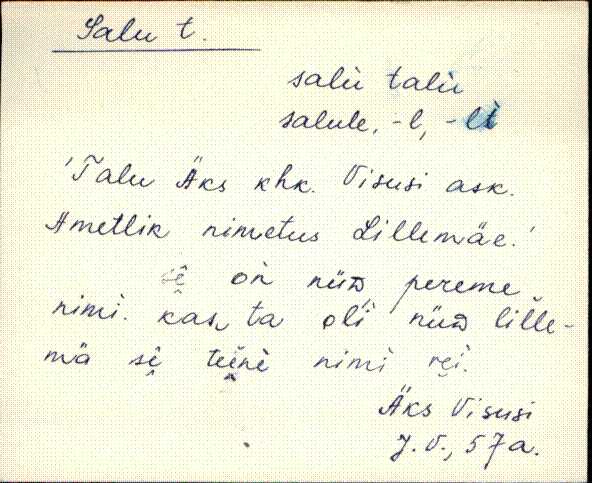 Salu t.
salu talu
salule, -l, -lt
'Talu Äks khk. Visusi ask.
Ametlik nimetus Lillemäe.'
sê on nüᴅ pereme
nimi. kas ta oli nüᴅ lille-
mä sê tęine nimi
Äks Visusi
J.V., 57 a.